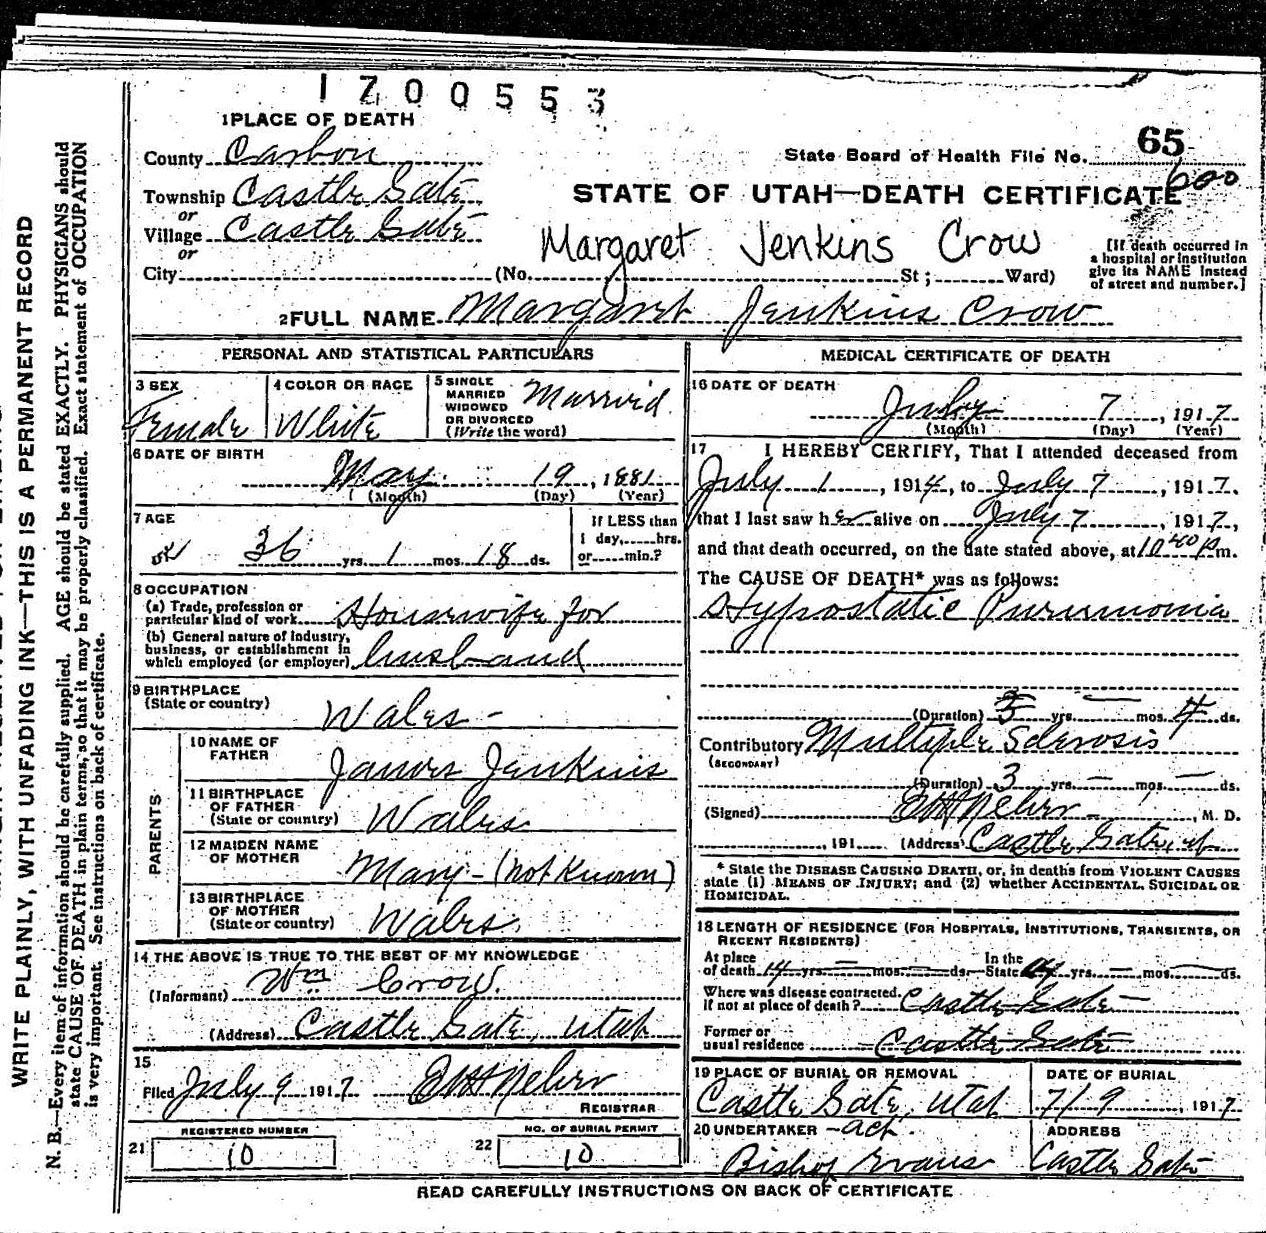 1700553
1 PLACE OF DEATH
County Carbon
65
State Board of Health File No.
600
Township Castle Gate
STATE OF UTAH—DEATH CERTIFICATE
or
Village Castle Gate
Margaret Jenkins Crow
or
City (No. St; Ward)
[If death occurred in
a hospital or institution
give its NAME instead
of street and number.]
2 FULL NAME Margaret Jenkins Crow
PERSONAL AND STATISTICAL PARTICULARS
3 SEX
Female
4 COLOR OR RACE
White
5 SINGLE
MARRIED
WIDOWED
OR DIVORCED
(Write the word)
Married
6 DATE OF BIRTH
May 19, 1881
(Month) (Day) (Year)
7 AGE
36 yrs. 1 mos. 18 ds.
If LESS than
1 day, hrs.
or min.?
8 OCCUPATION
(a) Trade, profession or
particular kind of work Housewife for
(b) General nature of Industry,
business, or establishment in
which employed (or employer) husband
9 BIRTHPLACE
(State or country)
Wales -
PARENTS
10 NAME OF
FATHER
James Jenkins
11 BIRTHPLACE
OF FATHER
(State or country)
Wales
12 MAIDEN NAME
OF MOTHER
Mary - (not Known)
13 BIRTHPLACE
OF MOTHER
(State or country)
Wales.
14 THE ABOVE IS TRUE TO THE BEST OF MY KNOWLEDGE
(Informant) Wm Crow.
(Address) Castle Gate, Utah
15
Filed July 9 1917
REGISTRAR
21 REGISTERED NUMBER
10
22 NO. OF BURIAL PERMIT
10
MEDICAL CERTIFICATE OF DEATH
16 DATE OF DEATH
July 7, 1917
(Month) (Day) (Year)
17 I HEREBY CERTIFY, That I attended deceased from
July 1, 1914, to July 7, 1917.
that I last saw her alive on July 7, 1917,
and that death occurred, on the date stated above, at 10 40 P m.
The CAUSE OF DEATH* was as follows:
Hypostatic Pneumonia
(Duration) yrs. — mos. 4 ds.
Contributory Multiple Sclerosis
(SECONDARY)
(Duration) 3 yrs. — mos. — ds.
(Signed) , M. D.
, 191 (Address) Castle Gate, Ut
* State the DISEASE CAUSING DEATH, or, in deaths from VIOLENT CAUSES
state (1) MEANS OF INJURY; and (2) whether ACCIDENTAL, SUICIDAL OR
HOMICIDAL.
18 LENGTH OF RESIDENCE (FOR HOSPITALS, INSTITUTIONS, TRANSIENTS, OR
RECENT RESIDENTS)
At place In the
of death 14 yrs. — mos. — ds. State 14 yrs. — mos. — ds.
Where was disease contracted.
if not at place of death? Castle Gate —
Former or
usual residence Castle Gate
19 PLACE OF BURIAL OR REMOVAL
Castle Gate, Utah
DATE OF BURIAL
7/9, 1917
20 UNDERTAKER - act.
Bishop Evans
ADDRESS
Castle Gate
READ CAREFULLY INSTRUCTIONS ON BACK OF CERTIFICATE
WRITE PLAINLY, WITH UNFADING INK—THIS IS A PERMANENT RECORD
N. B.—Every item of information should be carefully supplied. AGE should be stated EXACTLY. PHYSICIANS should
state CAUSE OF DEATH in plain terms, so that it may be properly classified. Exact statement of OCCUPATION
is very important. See instructions on back of certificate.